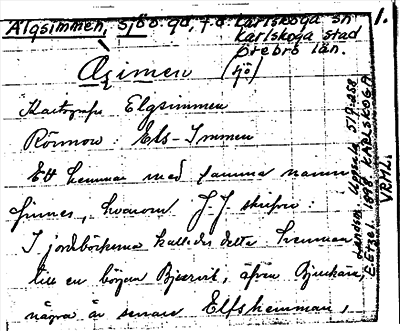 Älgsimmen, sjö o. gd, f.d. Karlskoga sn
Karlskoga stad
Örebro län.
1.
Ælgimen (sjö)
Kartografi Elgsimmen
Rönnow: Els-Immen
Ett hemman med samma namn
finnes, hvarom J. J. skrifver:
I jordböckerna kallades detta hemman
till en början Biursvik, äfven
några år senare Elfshemman,
Landsm. Uppsala 519:258
E. Etzel. 1898. KARLSKOGA
VRML.